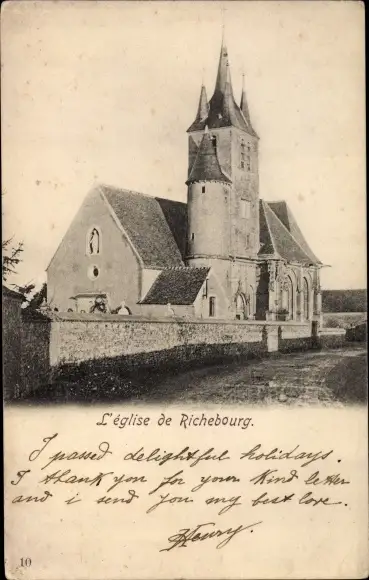 L'église de Richebourg.
I passed delightful holidays.
I thank you for your Kind letter
and i send you my best love.
Henry
10